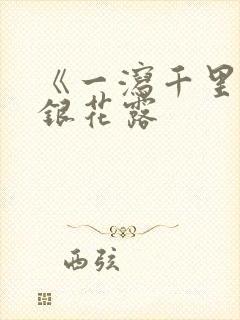 《一泻千里
銀花露
西弦